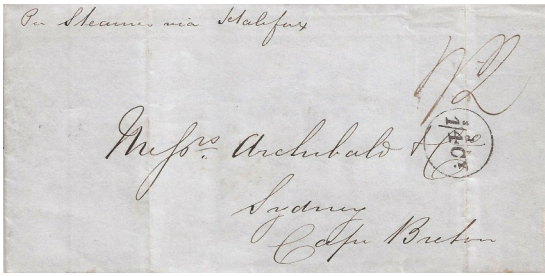 Per Steamer via Halifax
1/2
s d
1/4 Cy.
Messrs. Archibald & Co
Sydney
Cape Breton